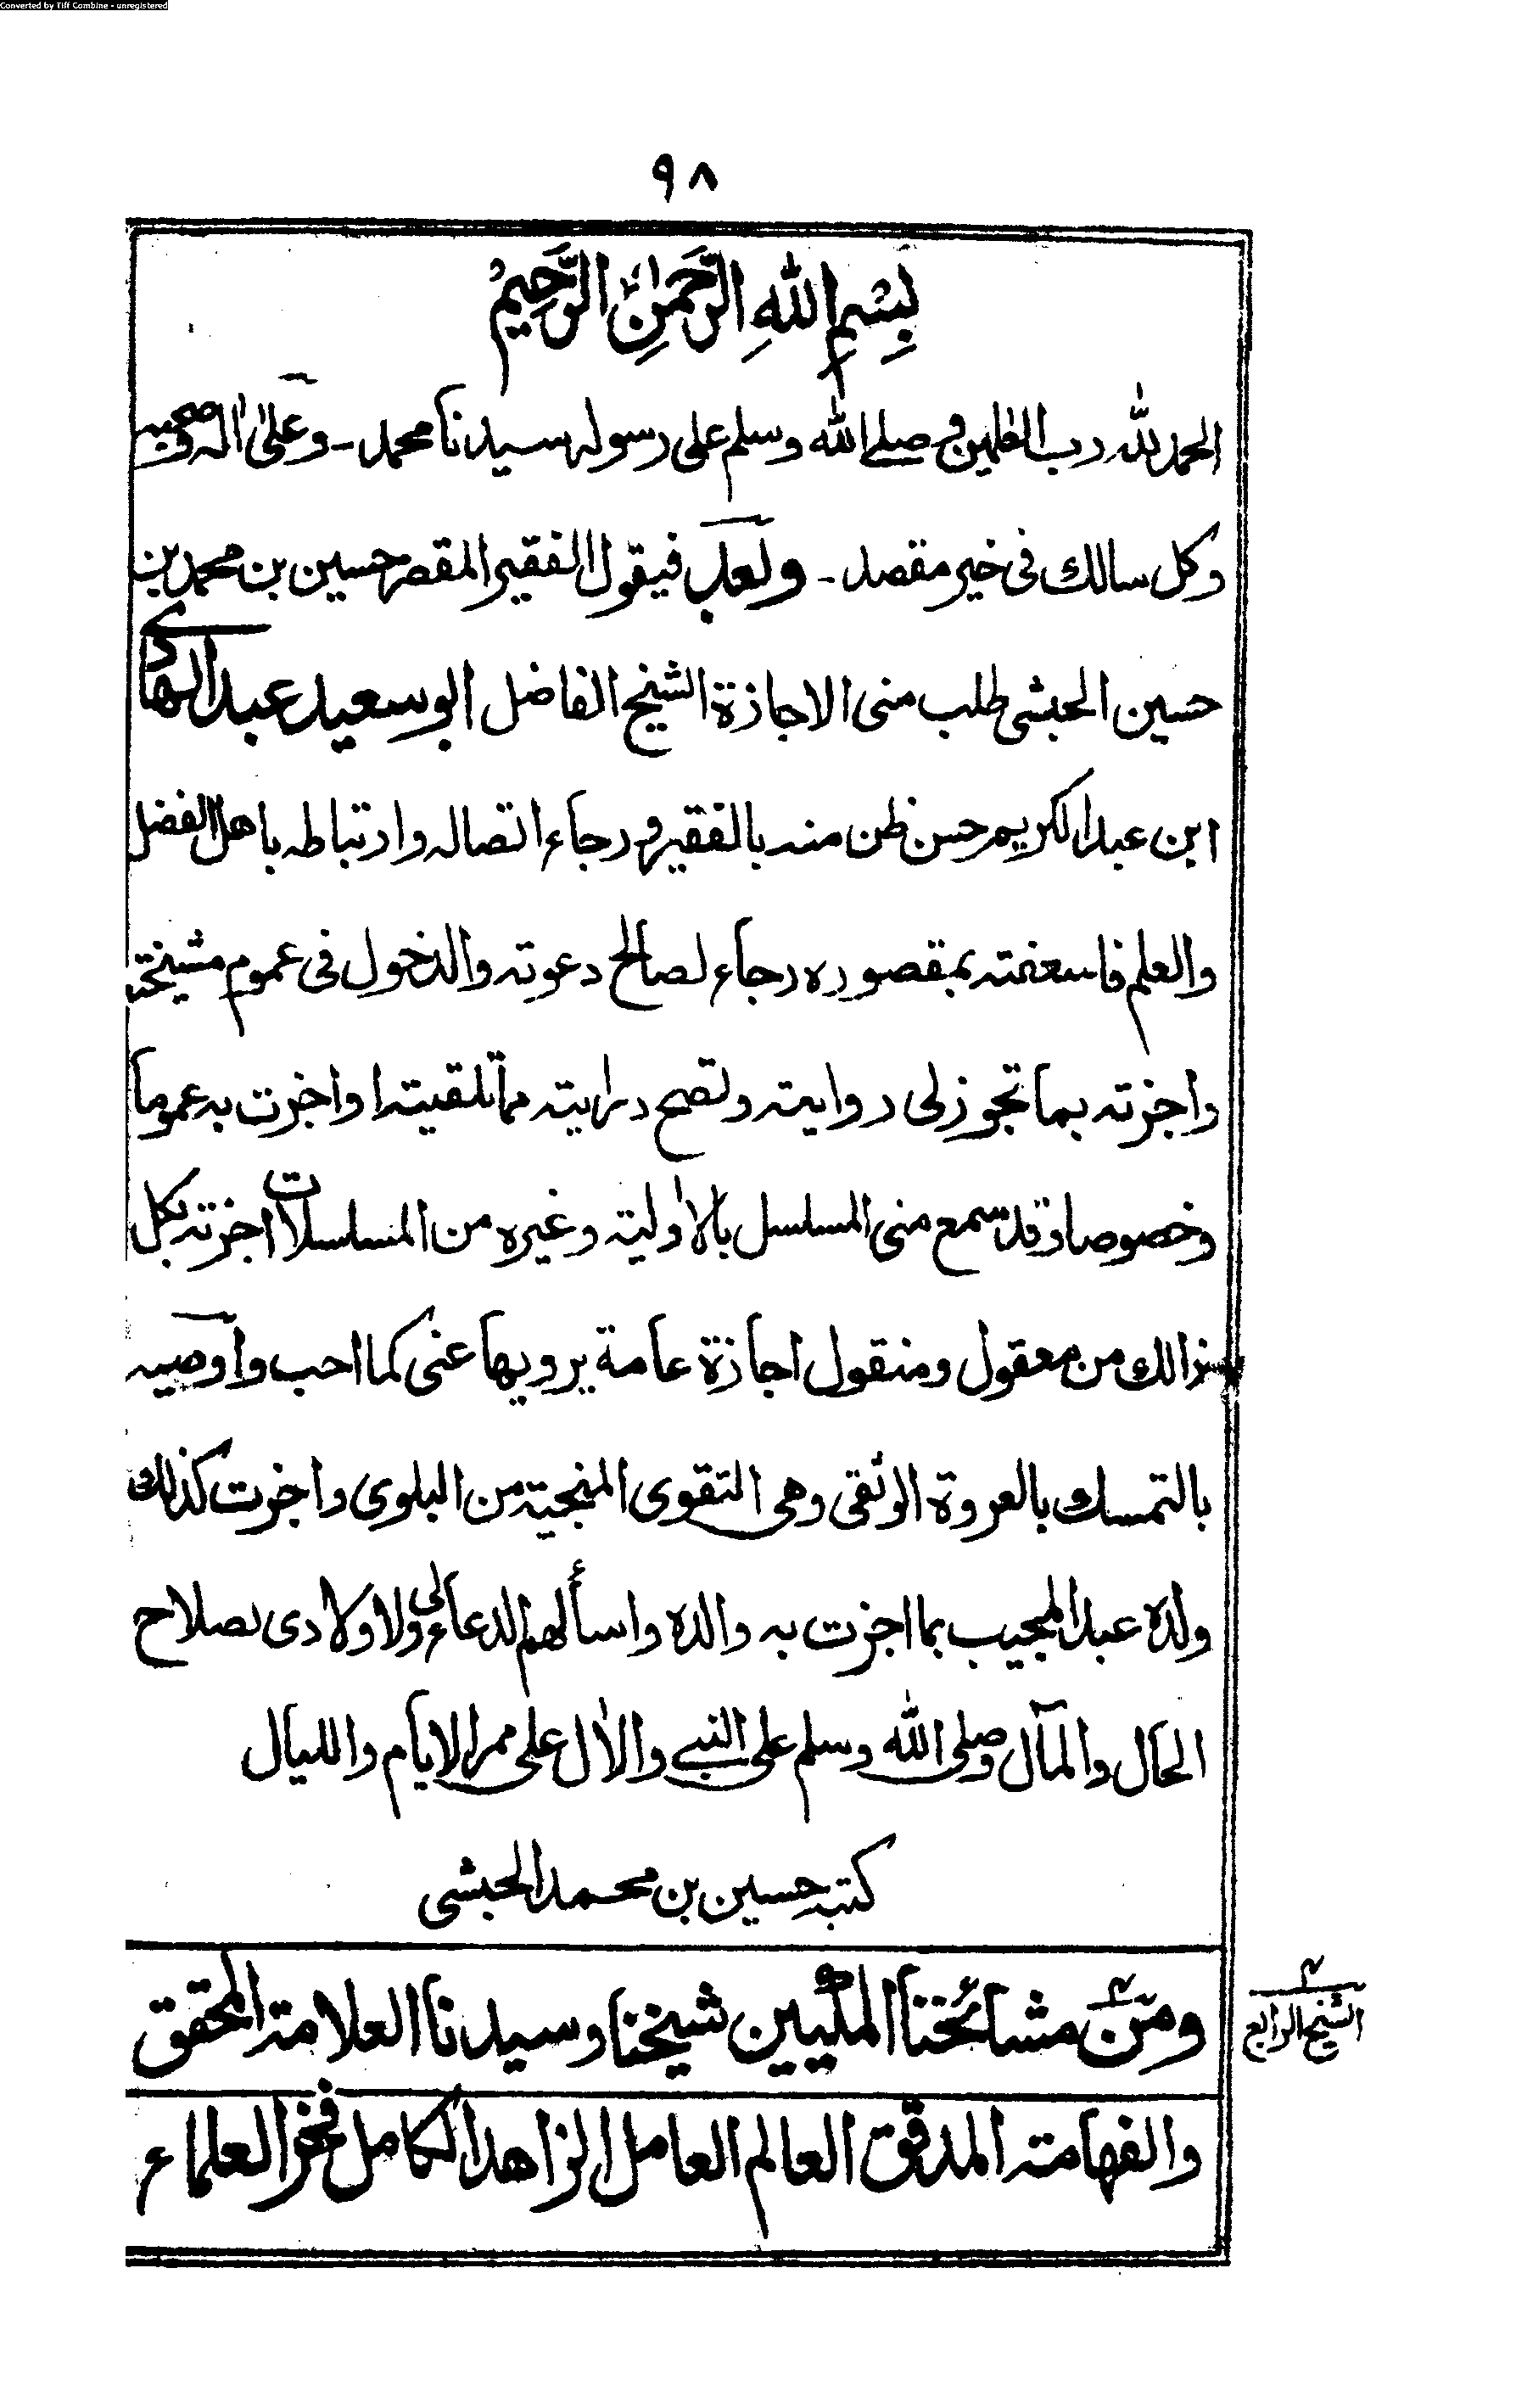 Converted by Tiff Combine - unregistered
٩٨
بِسْمِ اللهِ الرَّحْمٰنِ الرَّحِيْمِ
الحمد لله رب العٰلمين و صلے الله وسلم على رسوله سيدنا محمد ـ وعلىٰ اٰله وصحبه
وكل سالك فى خير مقصد ـ وبعد فيقول الفقير المقصر حسين بن محمد بن
حسين الحبشى طلب منى الاجازة الشيخ الفاضل ابو سعيد عبد الهادى
ابن عبد الكريم حسن ظن منه بالفقير و رجاء اتصاله وارتباطه باهل الفضل
والعلم فاسعفته بمقصوده رجاء لصالح دعوته والدخول فى عموم مشيخته
واجزته بما تجوز لى روايته وتصح درايته مما تلقيته او اجزت به عموما
وخصوصا وقد سمع منى المسلسل بالاولية وغيره من المسلسلات اجزته بكل
ذالك من معقول ومنقول اجازة عامة يرويها عنى كما احب واوصيه
بالتمسك بالعروة الوثقى وهى التقوى المنجية من البلوى واجزت كذلك
ولده عبد المجيب بما اجزت به والده واسألهم الدعاء لى ولاولادى بصلاح
الحال والمآل وصلى الله وسلم على النبے والاٰل على ممر الايام والليال
كتبه حسين بن محمد الحبشى
ومن مشائخنا المكيين شيخنا وسيدنا العلامة المحقق
الشيخ الرابع
والفهامة المدقق العالم العامل الزاهد الكامل فخر العلماء